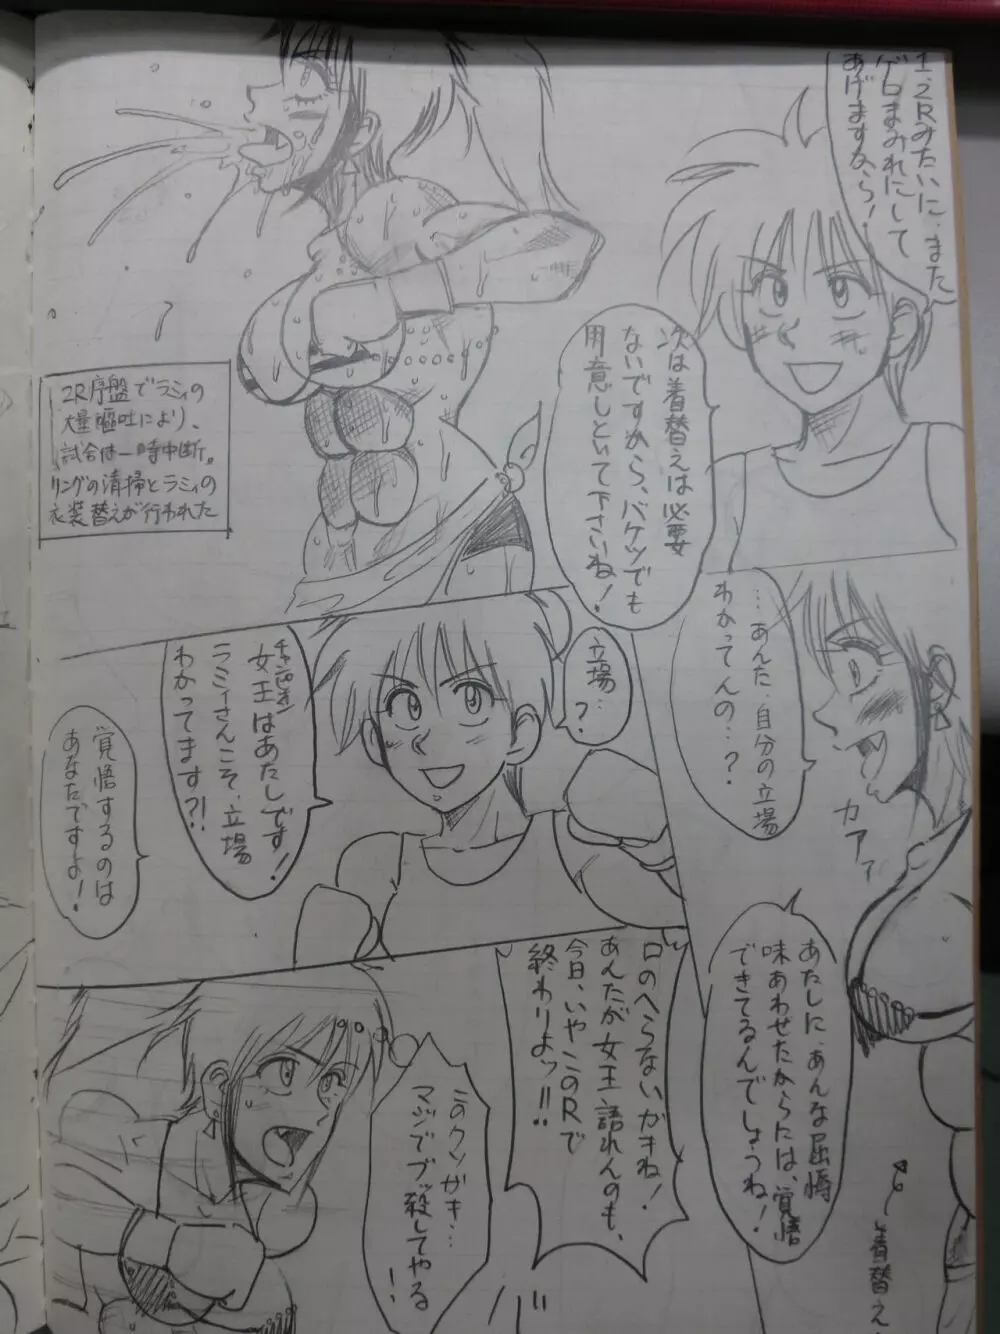 1、2Rみたいに、また
ゲロまみれにして
あげますから！
次は着替えは必要
ないですから、バケツでも
用意しといて下さいね！
2R序盤でラミィの
大量嘔吐により、
試合は一時中断。
リングの清掃とラミィの
衣装替えが行われた
…あんた、自分の立場
わかってんの…？
カアァ
立場…
？
女王はあたしです！
チャンピオン
ラミィさんこそ、立場
わかってます？!
覚悟するのは
あなたですよ！
あたしに、あんな屈辱
味あわせたからには、覚悟
できてるんでしょうね！
着替え
口のへらないがきね！
あんたが女王語れんのも、
今日、いやこのRで
終わりよッ!!
このクソがき…
マジでブッ殺してやる
！